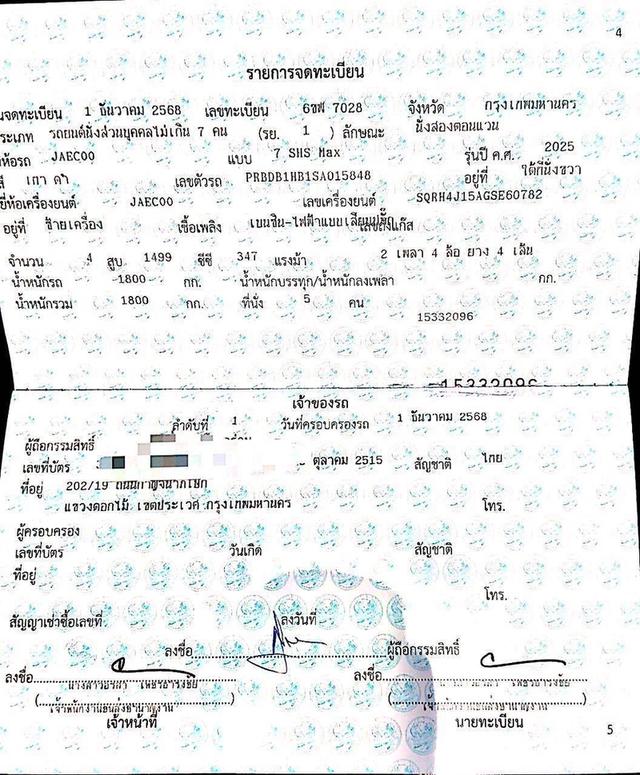 4
รายการจดทะเบียน
นจดทะเบียน 1 ธันวาคม 2568 เลขทะเบียน 6ขฬ 7028 จังหวัด กรุงเทพมหานคร
ระเภท รถยนต์นั่งส่วนบุคคลไม่เกิน 7 คน (รย. 1 ) ลักษณะ นั่งสองตอนแวน
ห้อรถ JAECOO แบบ 7 SHS Max รุ่นปี ค.ศ. 2025
สี เทา ดำ เลขตัวรถ PRBDB1HB1SA015848 อยู่ที่ ใต้ที่นั่งขวา
ยี่ห้อเครื่องยนต์ JAECOO เลขเครื่องยนต์ SQRH4J15AGSE60782
อยู่ที่ ซ้ายเครื่อง เชื้อเพลิง เบนซิน-ไฟฟ้าแบบเสียบปลั๊ก เลขถังแก๊ส
จำนวน 4 สูบ 1499 ซีซี 347 แรงม้า 2 เพลา 4 ล้อ ยาง 4 เส้น
น้ำหนักรถ 1800 กก. น้ำหนักบรรทุก/น้ำหนักลงเพลา กก.
น้ำหนักรวม 1800 กก. ที่นั่ง 5 คน
15332096
15332096
เจ้าของรถ
ลำดับที่ 1 วันที่ครอบครองรถ 1 ธันวาคม 2568
ผู้ถือกรรมสิทธิ์
เลขที่บัตร ตุลาคม 2515 สัญชาติ ไทย
ที่อยู่ 202/19 ถนนกาญจนาภิเษก
แขวงดอกไม้ เขตประเวศ กรุงเทพมหานคร โทร.
ผู้ครอบครอง
เลขที่บัตร วันเกิด สัญชาติ
ที่อยู่
โทร.
สัญญาเช่าซื้อเลขที่ ลงวันที่
ลงชื่อ ผู้ถือกรรมสิทธิ์
ลงชื่อ ลงชื่อ
เจ้าพนักงานขนส่งชำนาญงาน เจ้าพนักงานขนส่งชำนาญงาน
เจ้าหน้าที่ นายทะเบียน
5